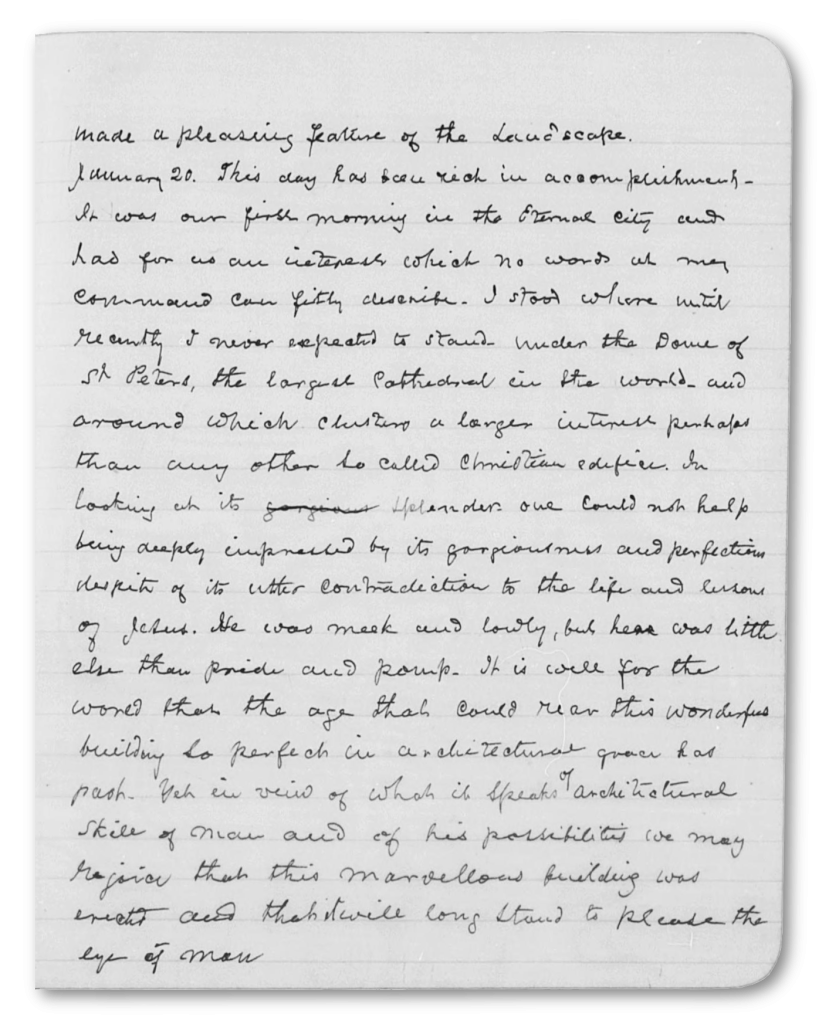 made a pleasing feature of the Landscape.
January 20. This day has been rich in accomplishment-
It was our first morning in the Eternal City and
had for us an interest which no words at my
command can fitly describe. I stood where until
recently I never expected to stand- under the Dome of
St Peters, the largest Cathedral in the world- and
around which clusters a larger interest perhaps
than any other so called Christian edifice. In
looking at its gorgious splender one could not help
being deeply impressed by its gorgiousness and perfection
despite of its utter contradiction to the life and lessons
of Jesus. He was meek and lowly, but here was little
else than pride and pomp. It is well for the
world that the age that could rear this wonderful
building so perfect in architectural grace has
past. Yet in veiw of what it speaks of architectural
skill of man and of his possibilities we may
rejoice that this marvellous building was
erected and that it will long stand to please the
eye of man